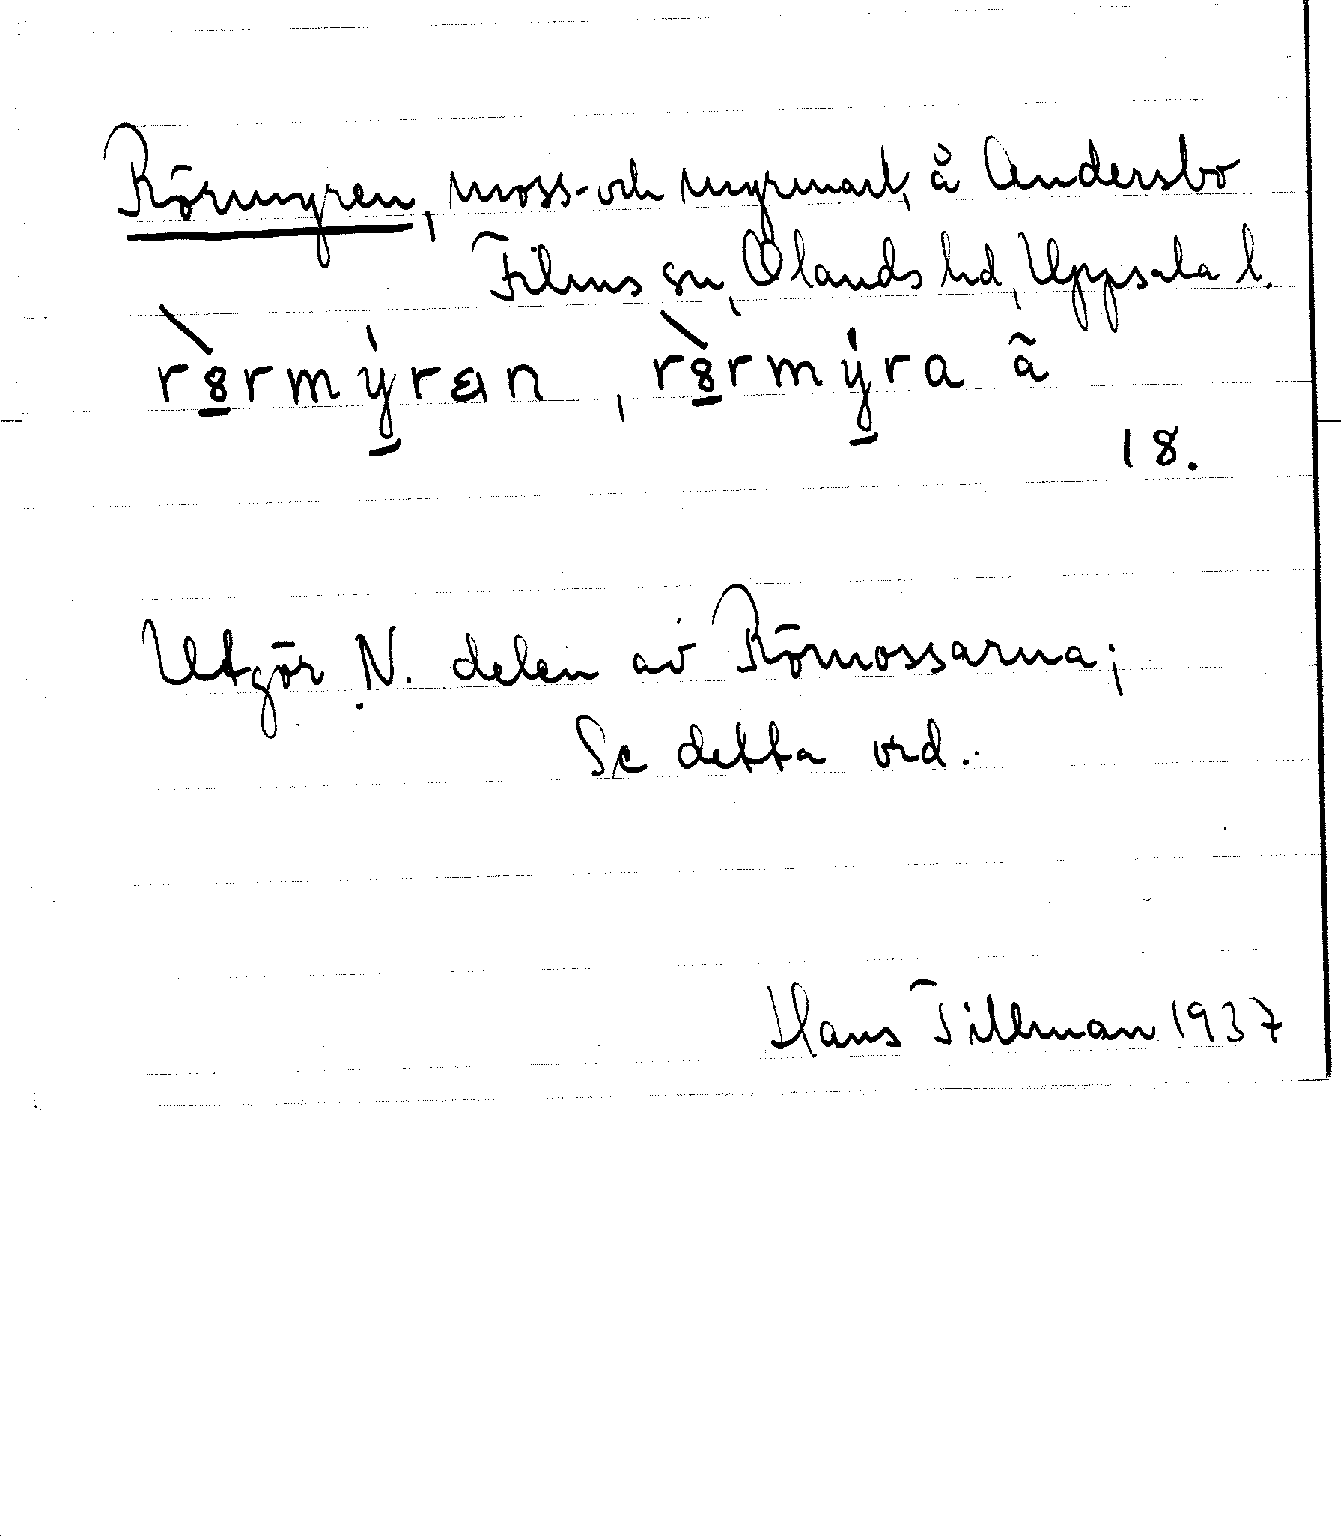 Rörmyren, moss- och myrmark, å Andersbo
Films sn, Olands hd, Uppsala l.
r8̀rmýran, r8̀rmýra ã
18.
Utgör N. delen av Rörmossarna;
Se detta ord.
Hans Tillman 1937